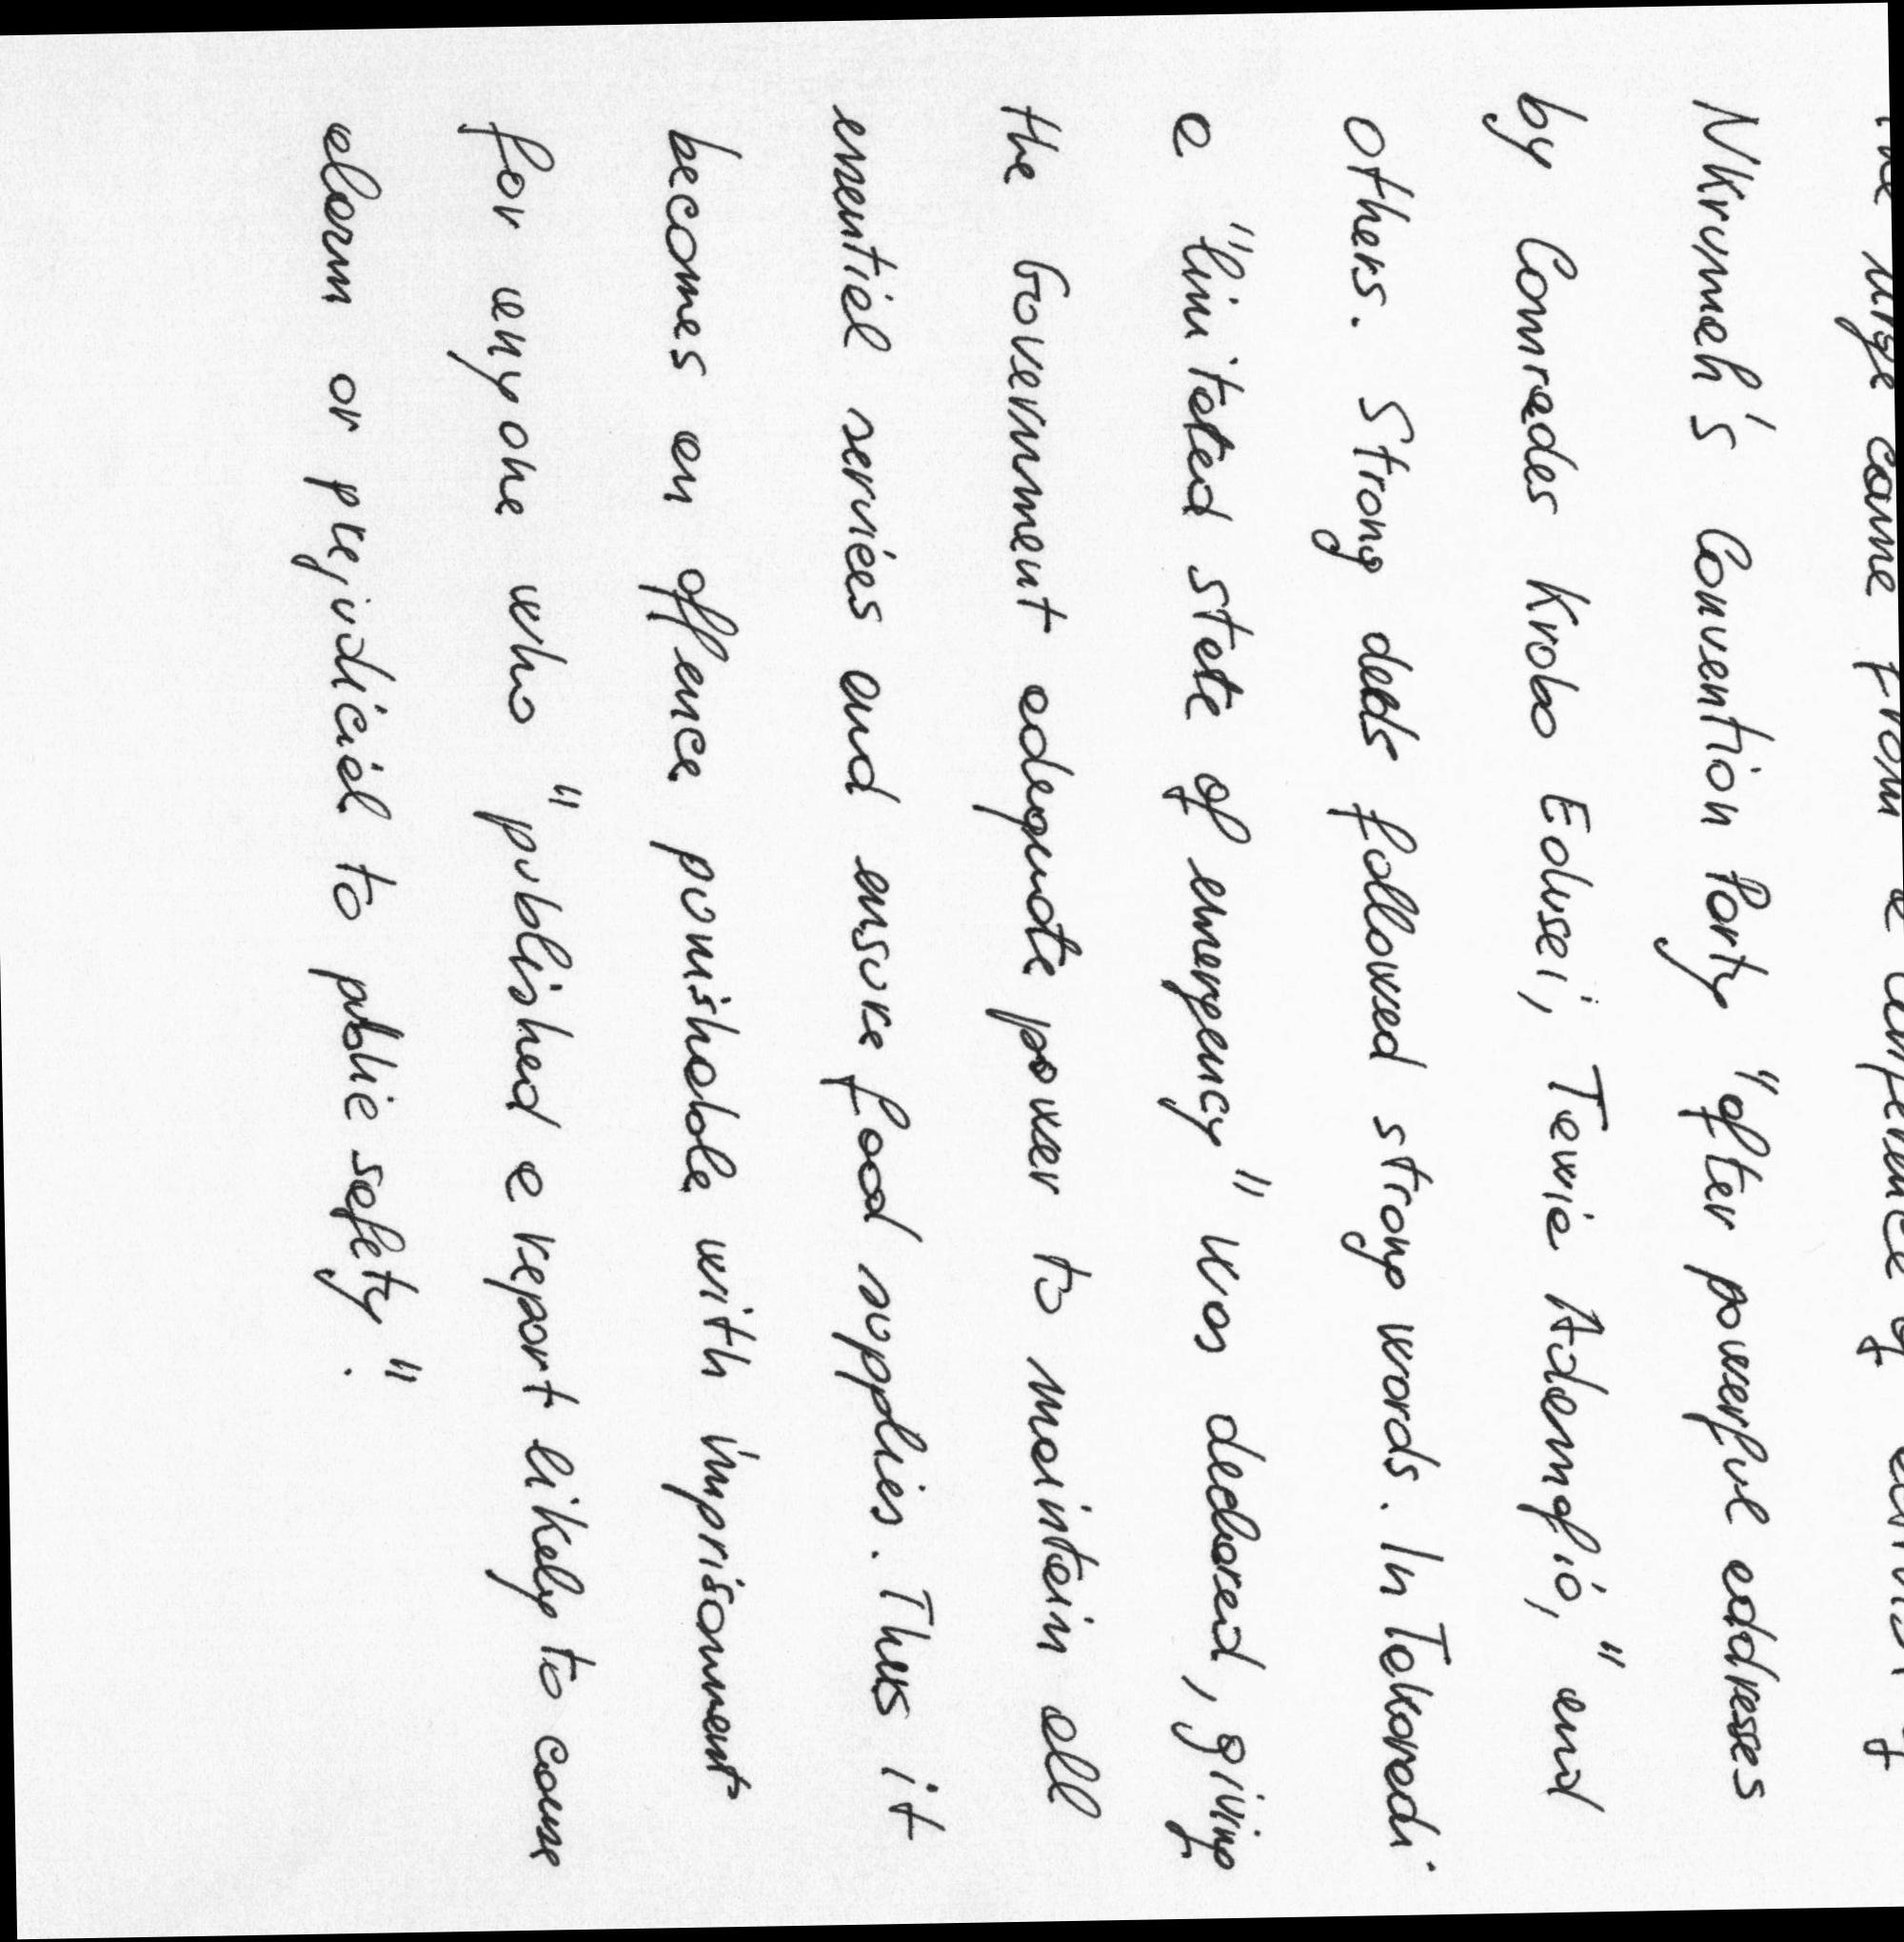 urge came from a conference of
Nkrumah's Convention Party "after powerful addresses
by Comrades Krobo Edusei, Tawia Adamafio," and
others. Strong deeds followed strong words. In Takoradi
a "limitated state of emergency" was declared, giving
the Government adequate power to maintain all
essential services and ensure food supplies. Thus it
becomes an offence punishable with imprisonment
for anyone who "published a report likely to cause
alarm or prejudicial to public safety".